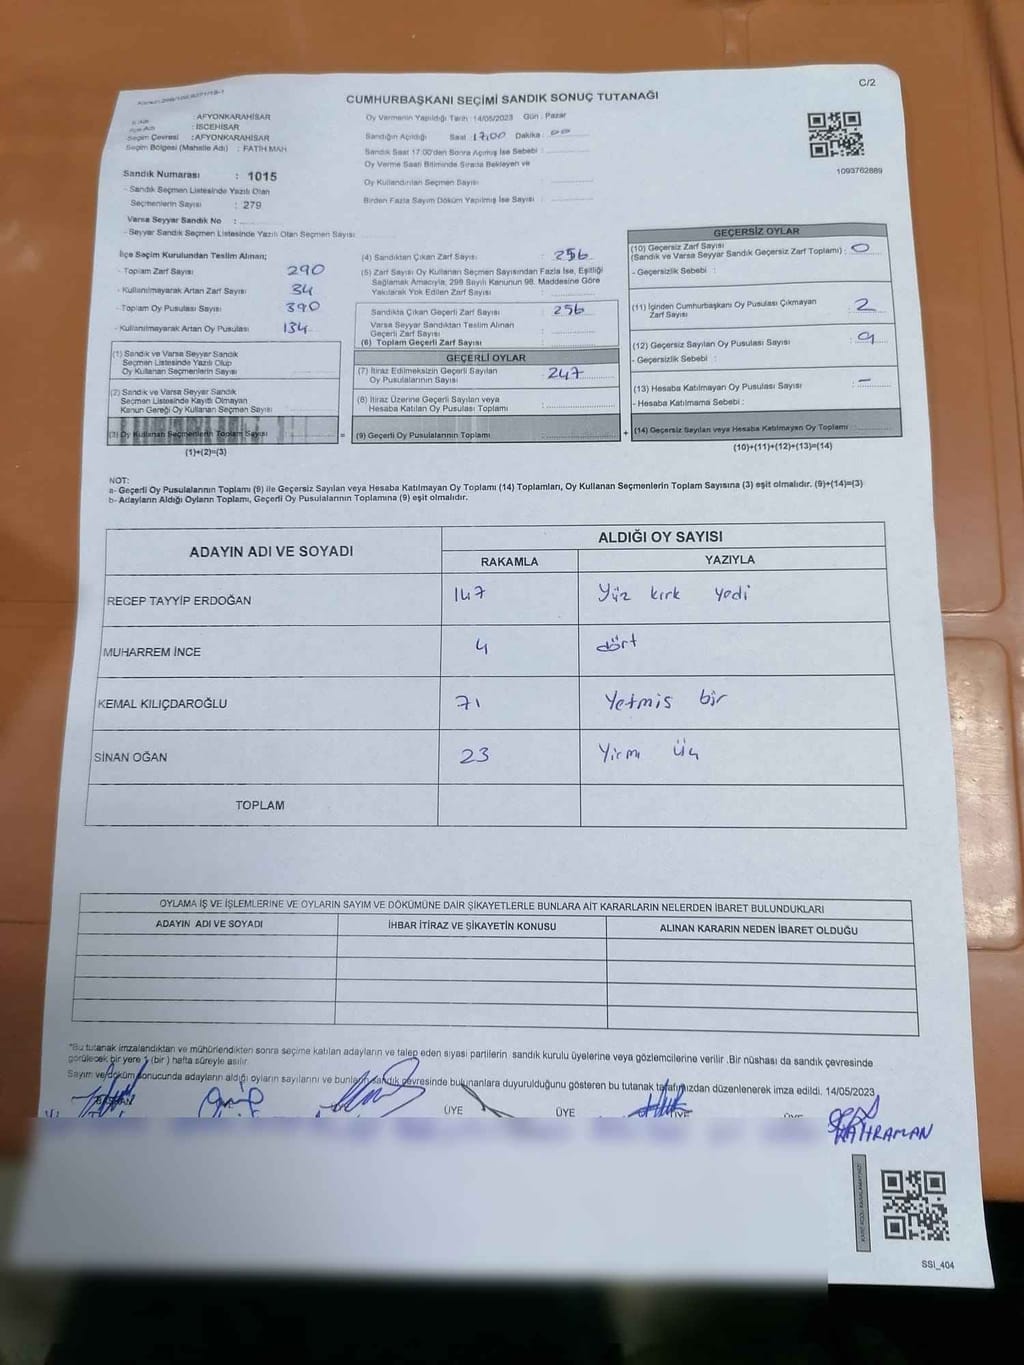 C/2
CUMHURBAŞKANI SEÇİMİ SANDIK SONUÇ TUTANAĞI
: AFYONKARAHİSAR
: İSCEHİSAR
Seçim Çevresi : AFYONKARAHİSAR
Seçim Bölgesi (Mahalle Adı) : FATİH MAH
Sandık Numarası : 1015
- Sandık Seçmen Listesinde Yazılı Olan
Seçmenlerin Sayısı : 279
Varsa Seyyar Sandık No :
- Seyyar Sandık Seçmen Listesinde Yazılı Olan Seçmen Sayısı :
Oy Vermenin Yapıldığı Tarih : 14/05/2023 Gün : Pazar
Sandığın Açıldığı Saat 17:00 Dakika : 00
Sandık Saat 17:00'den Sonra Açılmış İse Sebebi :
Oy Verme Saati Bitiminde Sırada Bekleyen ve
Oy Kullandırılan Seçmen Sayısı :
Birden Fazla Sayım Döküm Yapılmış İse Sayısı :
1093762889
İlçe Seçim Kurulundan Teslim Alınan;
- Toplam Zarf Sayısı : 290
- Kullanılmayarak Artan Zarf Sayısı : 34
- Toplam Oy Pusulası Sayısı : 390
- Kullanılmayarak Artan Oy Pusulası : 134
(1) Sandık ve Varsa Seyyar Sandık
Seçmen Listesinde Yazılı Olup
Oy Kullanan Seçmenlerin Sayısı :
(2) Sandık ve Varsa Seyyar Sandık
Seçmen Listesinde Kayıtlı Olmayan
Kanun Gereği Oy Kullanan Seçmen Sayısı :
(3) Oy Kullanan Seçmenlerin Toplam Sayısı :
(1)+(2)=(3)
(4) Sandıktan Çıkan Zarf Sayısı : 256
(5) Zarf Sayısı Oy Kullanan Seçmen Sayısından Fazla İse, Eşitliği
Sağlamak Amacıyla, 298 Sayılı Kanunun 98. Maddesine Göre
Yakılarak Yok Edilen Zarf Sayısı :
Sandıkta Çıkan Geçerli Zarf Sayısı : 256
Varsa Seyyar Sandıktan Teslim Alınan
Geçerli Zarf Sayısı :
(6) Toplam Geçerli Zarf Sayısı :
GEÇERLİ OYLAR
(7) İtiraz Edilmeksizin Geçerli Sayılan
Oy Pusulalarının Sayısı : 247
(8) İtiraz Üzerine Geçerli Sayılan veya
Hesaba Katılan Oy Pusulası Toplamı :
= (9) Geçerli Oy Pusulalarının Toplamı :
GEÇERSİZ OYLAR
(10) Geçersiz Zarf Sayısı
(Sandık ve Varsa Seyyar Sandık Geçersiz Zarf Toplamı) : 0
- Geçersizlik Sebebi :
(11) İçinden Cumhurbaşkanı Oy Pusulası Çıkmayan
Zarf Sayısı : 2
(12) Geçersiz Sayılan Oy Pusulası Sayısı : 9
- Geçersizlik Sebebi :
(13) Hesaba Katılmayan Oy Pusulası Sayısı : -
- Hesaba Katılmama Sebebi :
+ (14) Geçersiz Sayılan veya Hesaba Katılmayan Oy Toplamı :
(10)+(11)+(12)+(13)=(14)
NOT:
a- Geçerli Oy Pusulalarının Toplamı (9) ile Geçersiz Sayılan veya Hesaba Katılmayan Oy Toplamı (14) Toplamları, Oy Kullanan Seçmenlerin Toplam Sayısına (3) eşit olmalıdır. (9)+(14)=(3)
b- Adayların Aldığı Oyların Toplamı, Geçerli Oy Pusulalarının Toplamına (9) eşit olmalıdır.
ADAYIN ADI VE SOYADI ALDIĞI OY SAYISI
RAKAMLA YAZIYLA
RECEP TAYYİP ERDOĞAN 147 Yüz kırk yedi
MUHARREM İNCE 4 dört
KEMAL KILIÇDAROĞLU 71 Yetmiş bir
SİNAN OĞAN 23 Yirmi üç
TOPLAM
OYLAMA İŞ VE İŞLEMLERİNE VE OYLARIN SAYIM VE DÖKÜMÜNE DAİR ŞİKAYETLERLE BUNLARA AİT KARARLARIN NELERDEN İBARET BULUNDUKLARI
ADAYIN ADI VE SOYADI İHBAR İTİRAZ VE ŞİKAYETİN KONUSU ALINAN KARARIN NEDEN İBARET OLDUĞU
*Bu tutanak imzalandıktan ve mühürlendikten sonra seçime katılan adayların ve talep eden siyasi partilerin sandık kurulu üyelerine veya gözlemcilerine verilir .Bir nüshası da sandık çevresinde
görülecek bir yere 1 (bir) hafta süreyle asılır.
Sayım ve döküm sonucunda adayların aldığı oyların sayılarını ve bunların sandık çevresinde bulunanlara duyurulduğunu gösteren bu tutanak tarafımızdan düzenlenerek imza edildi. 14/05/2023
BAŞKAN ÜYE ÜYE ÜYE ÜYE
KAHRAMAN
SSI_404